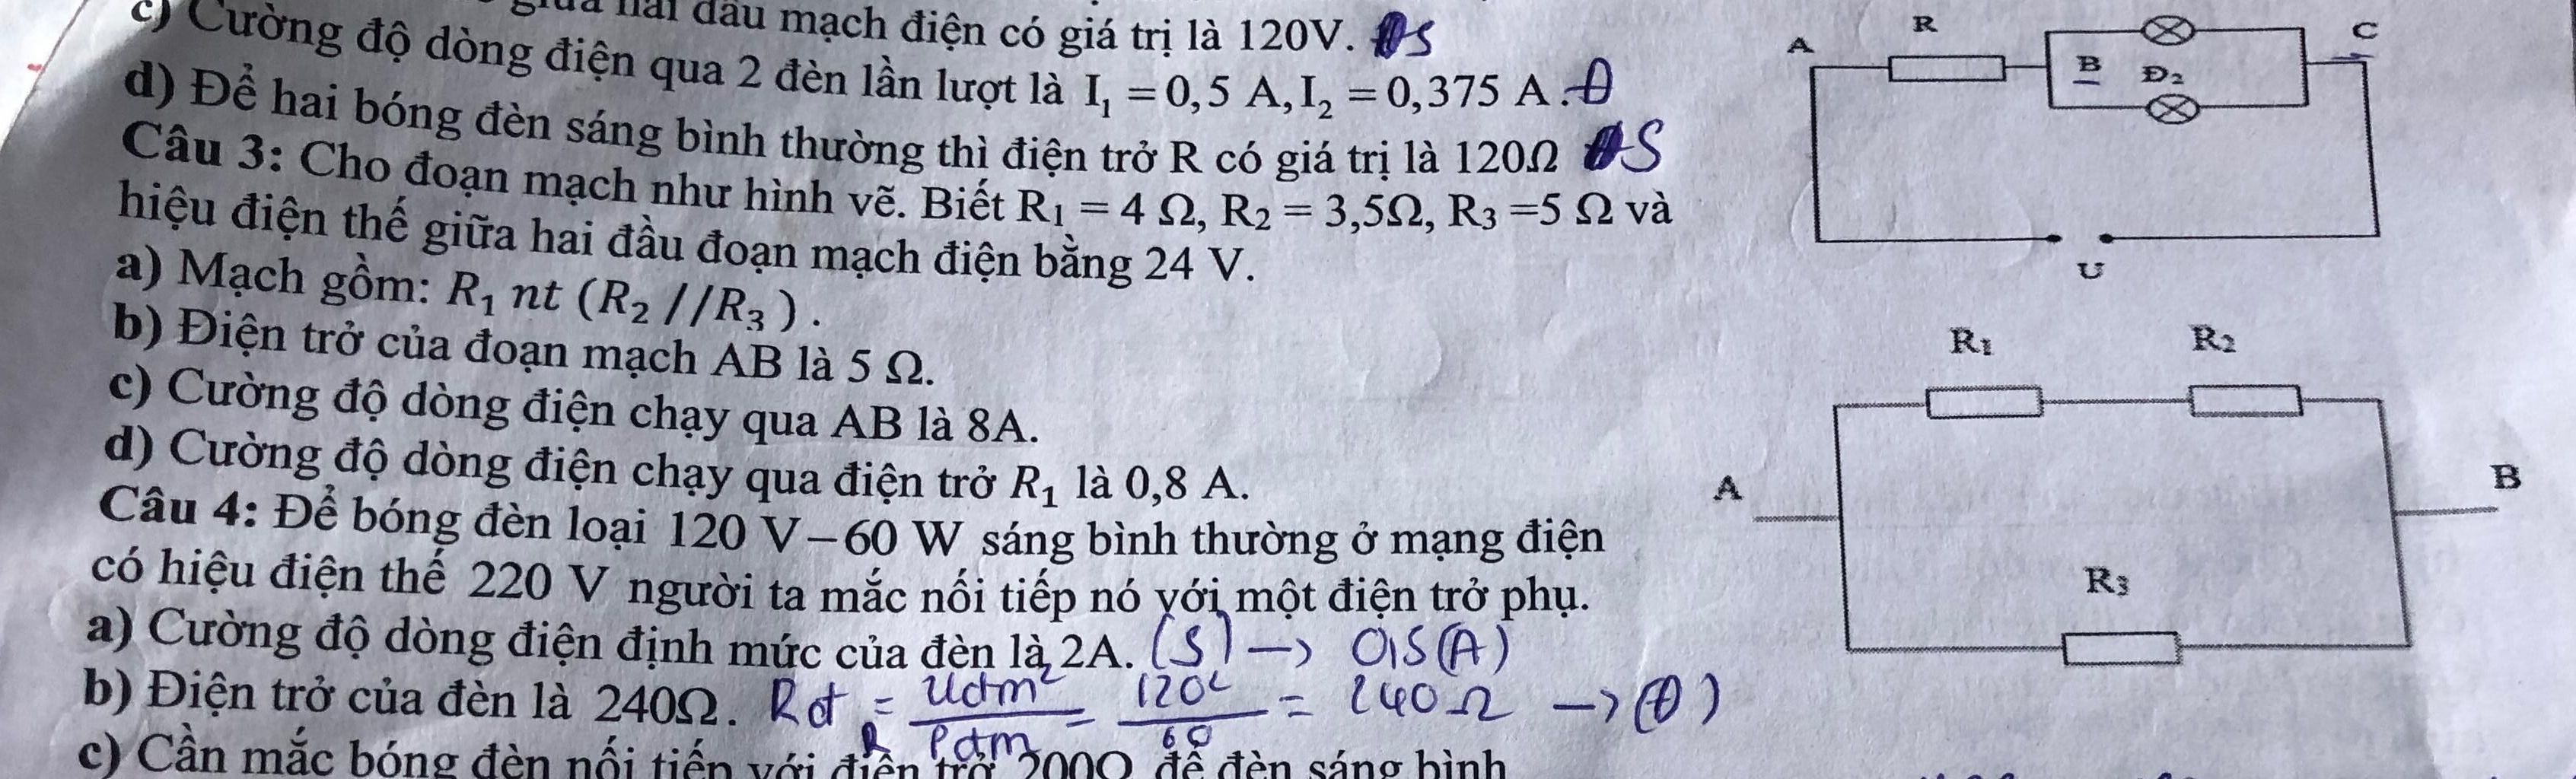 giữa hai đầu mạch điện có giá trị là 120V. S
c) Cường độ dòng điện qua 2 đèn lần lượt là I₁ = 0,5 A, I₂ = 0,375 A. Đ
d) Để hai bóng đèn sáng bình thường thì điện trở R có giá trị là 120Ω S
Câu 3: Cho đoạn mạch như hình vẽ. Biết R₁ = 4 Ω, R₂ = 3,5Ω, R₃ =5 Ω và
hiệu điện thế giữa hai đầu đoạn mạch điện bằng 24 V.
a) Mạch gồm: R₁ nt (R₂ //R₃ ) .
b) Điện trở của đoạn mạch AB là 5 Ω.
c) Cường độ dòng điện chạy qua AB là 8A.
d) Cường độ dòng điện chạy qua điện trở R₁ là 0,8 A.
Câu 4: Để bóng đèn loại 120 V–60 W sáng bình thường ở mạng điện
có hiệu điện thế 220 V người ta mắc nối tiếp nó với một điện trở phụ.
a) Cường độ dòng điện định mức của đèn là 2A. (S) → 0,5(A)
b) Điện trở của đèn là 240Ω. Rđ = Uđm²/Pđm = 120²/60 = 240Ω → (Đ)
c) Cần mắc bóng đèn nối tiếp với điện trở 200Ω để đèn sáng bình
A R B Đ₂ C
U
R₁ R₂
A B
R₃